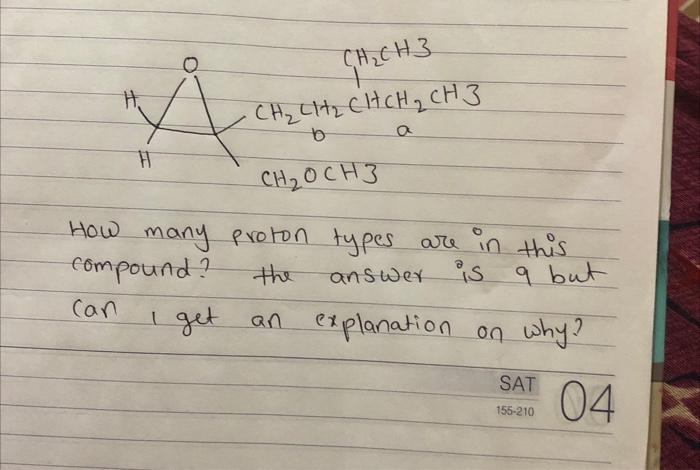 O
CH2CH3
H
CH2CH2CHCH2CH3
b a
H
CH2OCH3
How many proton types are in this
compound? the answer is 9 but
can i get an explanation on why?
SAT
155-210
04